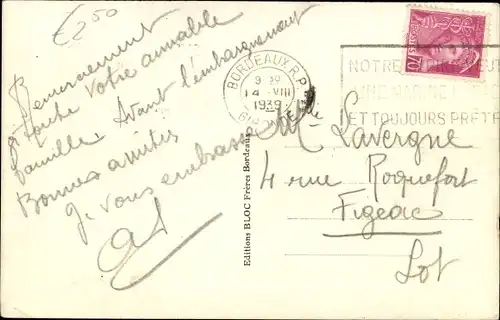 €250
Remerciement
à toute votre aimable
famille. Avant l'embarquement
Bonnes amitiés
Je vous embrasse
BORDEAUX R.P.
9 30
14 VIII
1939
GIRONDE
NOTRE
UNE MARINE
ET TOUJOURS PRÊTE
POSTES
70
Mlle
Lavergne
4 rue Roquefort
Figeac
Lot
Editions BLOC Frères Bordeaux